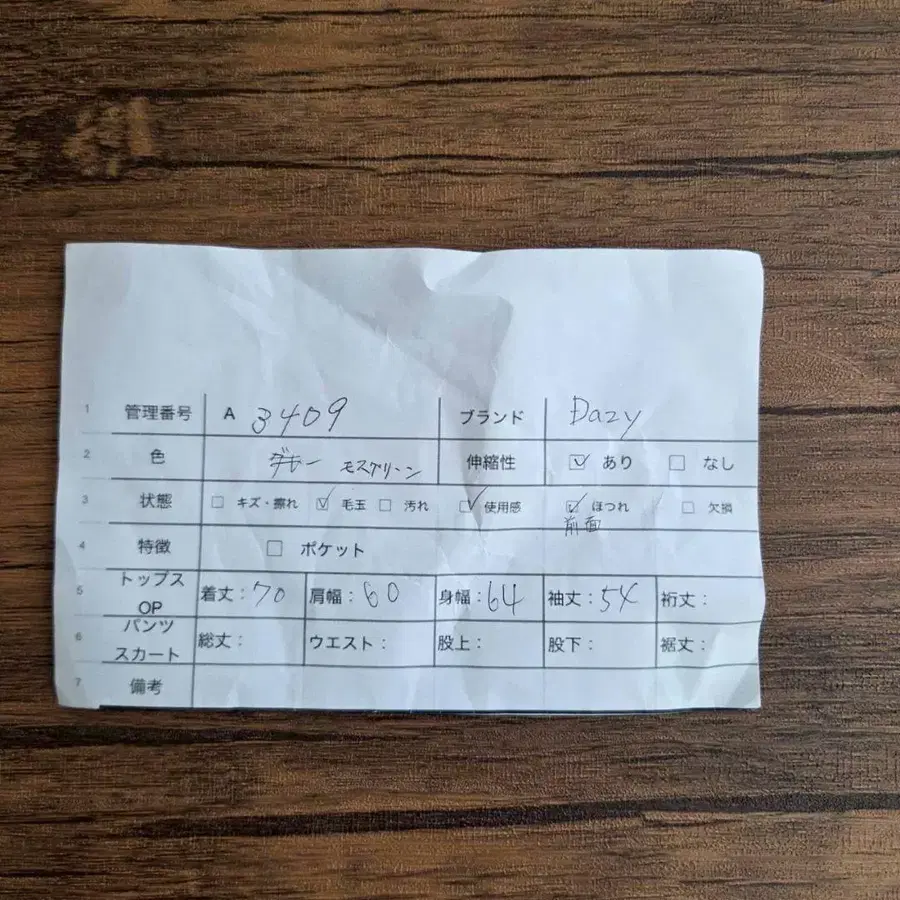 1 管理番号 A 3409 ブランド Dazy
2 色 モスグリーン 伸縮性 ☑ あり ☐ なし
3 状態 ☐ キズ・擦れ ☑ 毛玉 ☐ 汚れ ☑ 使用感 ☑ ほつれ ☐ 欠損
前面
4 特徴 ☐ ポケット
5 トップス OP 着丈：70 肩幅：60 身幅：64 袖丈：54 裄丈：
6 パンツ スカート 総丈： ウエスト： 股上： 股下： 裾丈：
7 備考